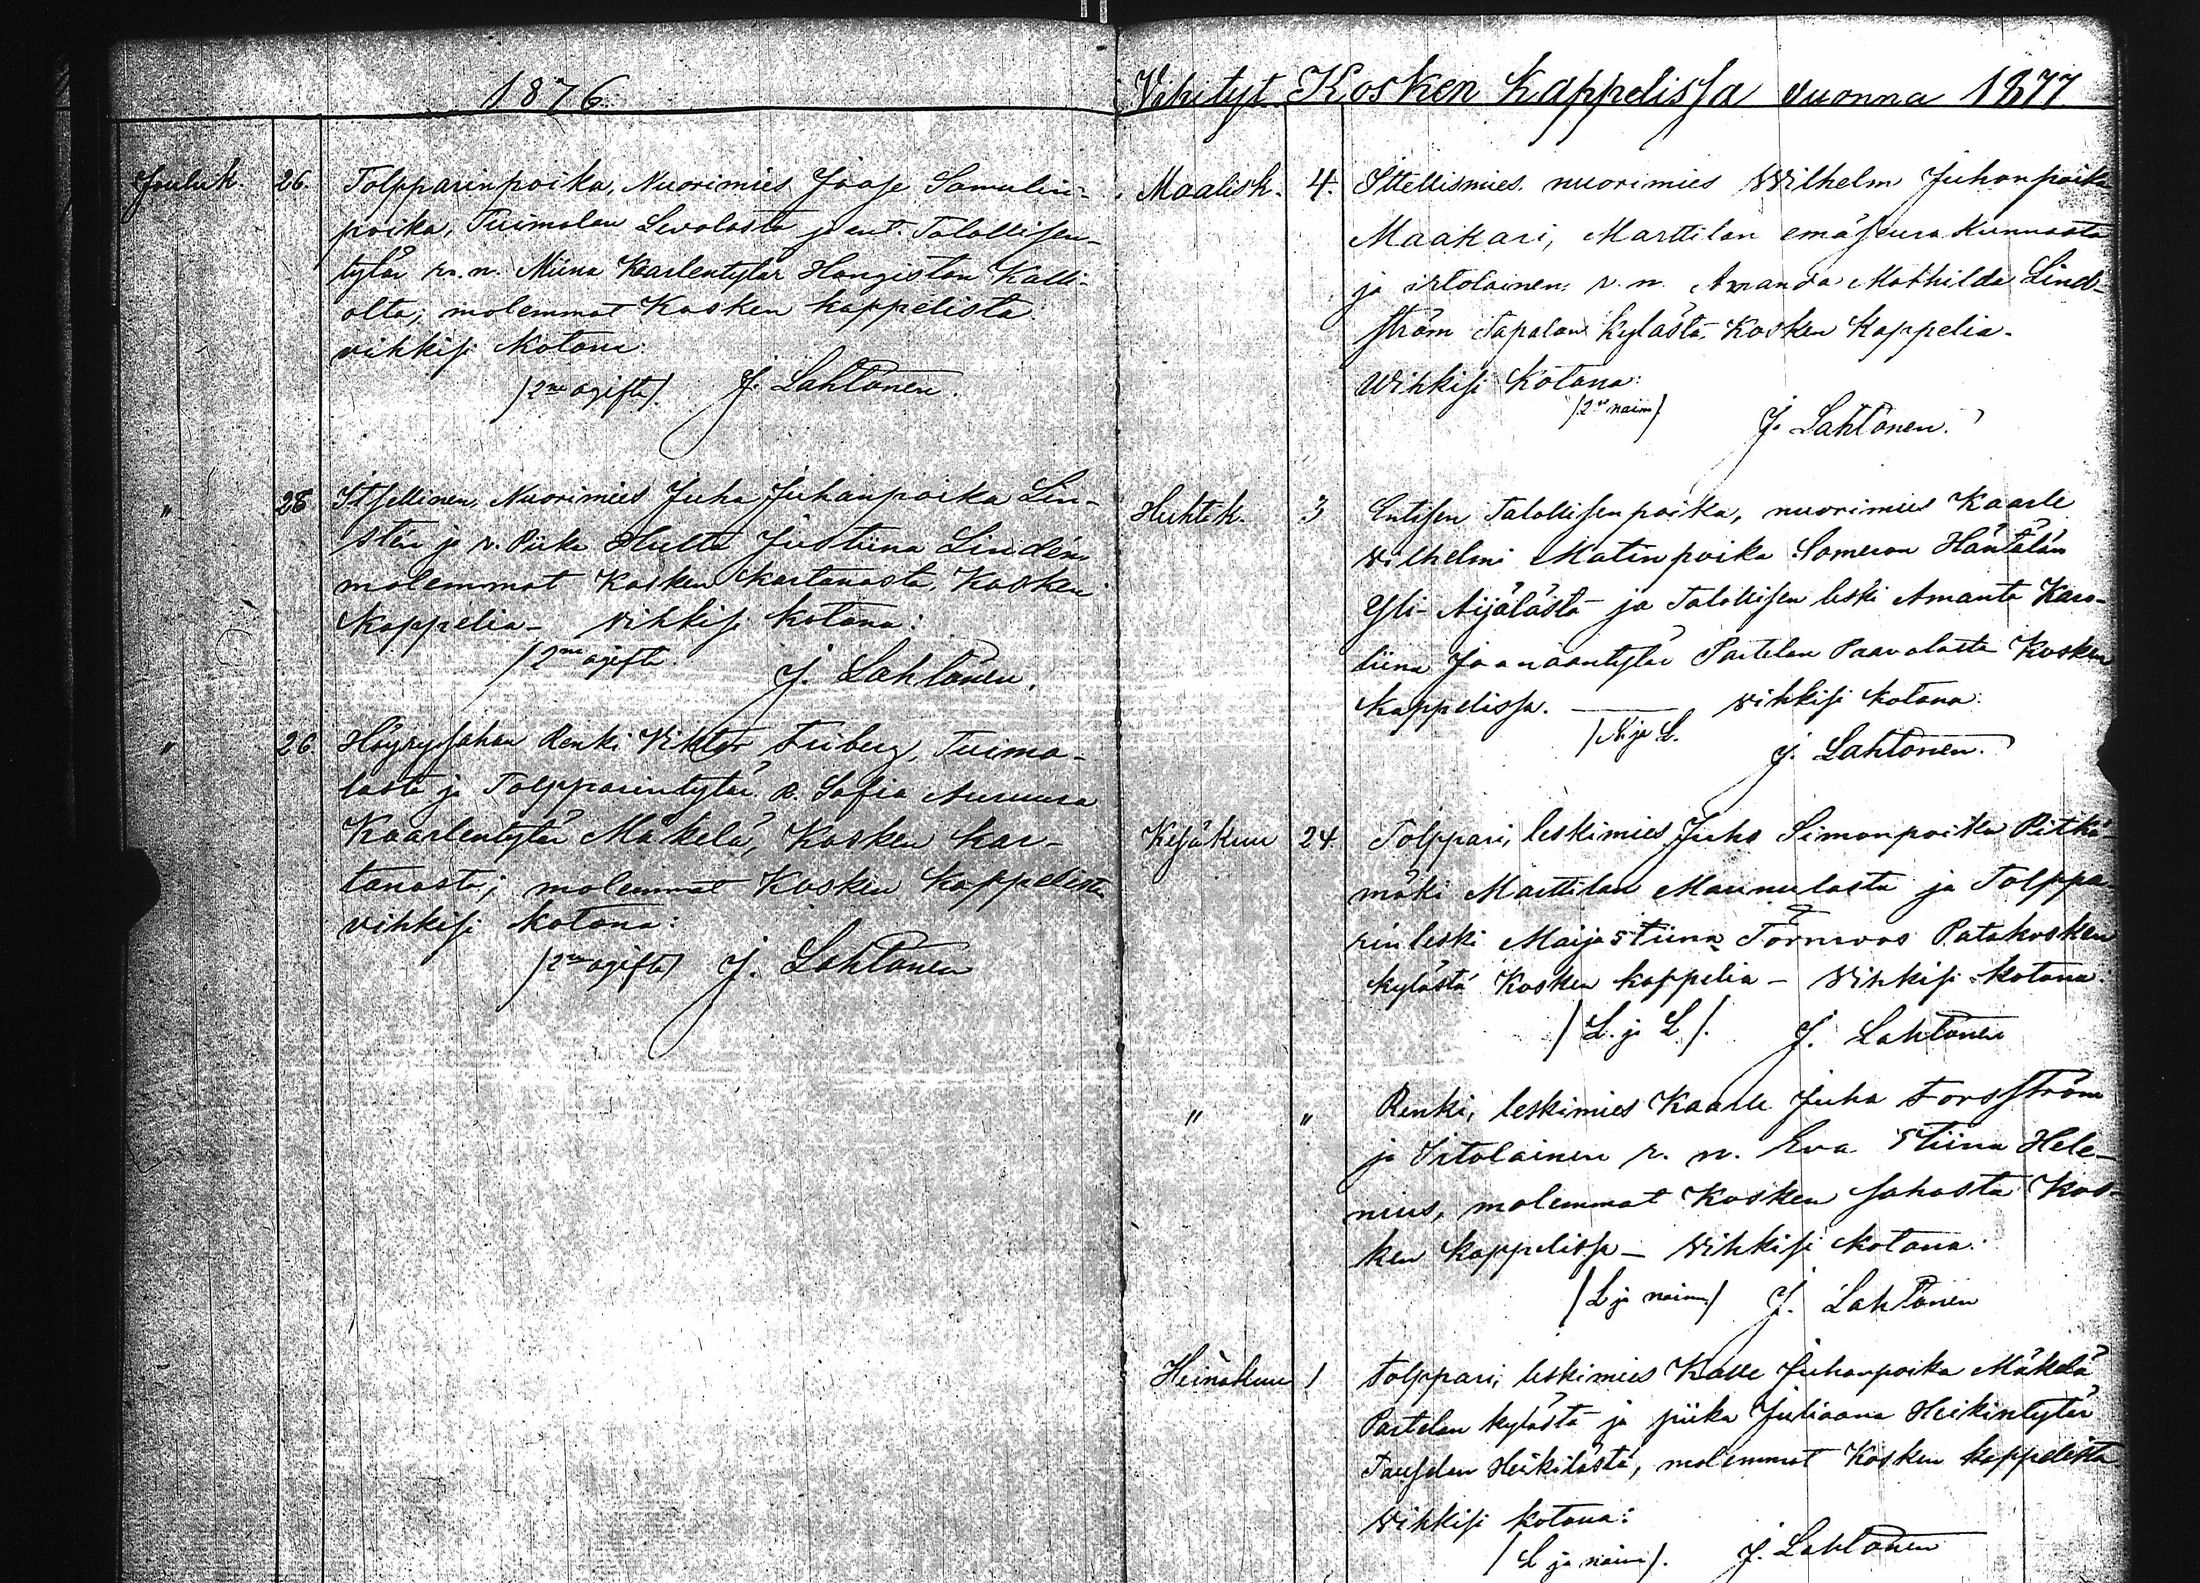 1876.
Jouluk. 26. Tolpparinpoika, Nuorimies Joose Samulin-
poika, Tuimalan Levolasta ja ent. Talollisen-
tytär n. n. Miina Kaarlentytär Hongiston Kalli-
olta; molemmat Kosken kappelista
vihkisi Kotona:
/2ne ogifta/. J. Lahtonen.
" 28 Itsellinen, Nuorimies Juha Juhanpoika Lin-
stén ja n. Piika Hulta Justiina Lindén
molemmat Kosken kartanosta, Kosken
Kappelia - vihkisi kotona:
/2ne ogifta. J. Lahtonen.
" 26 Höyrysahan Renki Viktor Friberg, Tuima-
lasta ja Tolpparintytär. n. Sofia Auruura
Kaarlentytär Mäkelä, Kosken kar-
tanosta; molemmat Kosken Kappelista
vihkisi kotona:
/2ne ogifta/ J. Lahtonen
Vihityt Kosken Kappelissa vuonna 1877
Maalisk. 4. Ittellismies nuorimies Wilhelm Juhanpoika
Maakari, Marttilan emäseurakunnasta
ja irtolainen n. n. Amanda Mathilda Lind-
ström Tapalan kylästä, Kosken Kappelia.
Wihkisi Kotona:
/2 naim/
J. Lahtonen.
Huhtik. 3 Entisen Talollisenpoika, nuorimies Kaarle
Vilhelmi Matinpoika Someron Häntälän
Yli-Äijälästä ja Talollisen leski Amanta Karo-
liina Joonaantytär Partelan Paavolasta Kosken
Kappelissa. - vihkisi kotona:
/N. ja L. J. Lahtonen.
Kesäkuu 24. Tolppari, leskimies Juho Simonpoika Pitkä-
mäki Marttilan Maunulasta ja Tolppa-
rin leski Maija Stiina Törnroos Patakosken
kylästä Kosken kappelia - Vihkisi kotona:
/L. ja L/. J. Lahtonen
" " Renki, leskimies Kaarle Juha Forsström
ja Irtolainen n. n. Eva Stiina Hele-
nius, molemmat Kosken sahasta Kos-
ken Kappelissa - Vihkisi kotona:
/L ja naim/ J. Lahtonen
Heinäkuu 1 Tolppari, leskimies Kalle Juhanpoika Mäkelä
Partelan kylästä ja piika Juliaana Heikintytär
Tauselan Heikilästä, molemmat Kosken kappelista
Vihkisi kotona:
/L ja naim/. J. Lahtonen